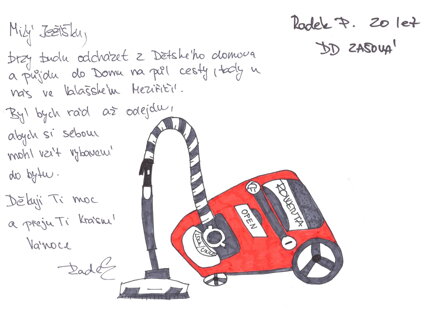 Milý Ježíšku,
Radek P. 20 let
DD ZAŠOVÁ
brzy budu odcházet z Dětského domova
a půjdu do Domu na půl cesty, tady u
nás ve Valašském Meziříčí.
Byl bych rád až odejdu,
abych si sebou
mohl vzít vybavení
do bytu.
Děkuji Ti moc
a přeju Ti krásné
Vánoce
Radek
OPEN